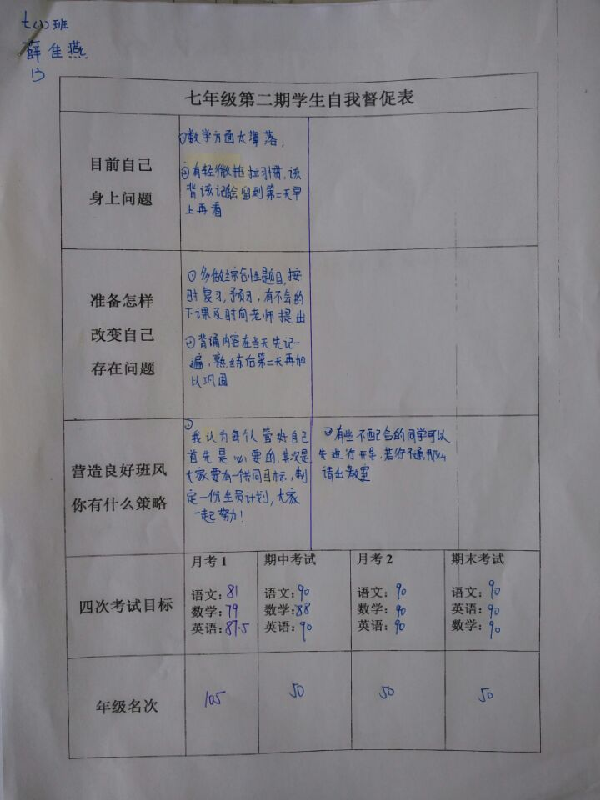 七(1)班
薛佳燕
13
七年级第二期学生自我督促表
目前自己
身上问题
①数学方面大薄落
②有轻微拖拉习惯,该
背该记会留到第二天早
上再看
准备怎样
改变自己
存在问题
①多做综合性题目,按
时复习,预习,有不会的
下课及时向老师提出
②背诵内容在当天先记一
遍,熟练后第二天再加
以巩固
营造良好班风
你有什么策略
①
我认为每个人管好自己
首先是必要的,其次是
大家要有一个共同目标,制
定一份全员计划,大家
一起努力!
②有些不配合的同学可以
先进行
请出教室
四次考试目标
月考1
语文:81
数学:79
英语:87.5
期中考试
语文:90
数学:88
英语:90
月考2
语文:90
数学:90
英语:90
期末考试
语文:90
英语:90
数学:90
年级名次
105
50
50
50